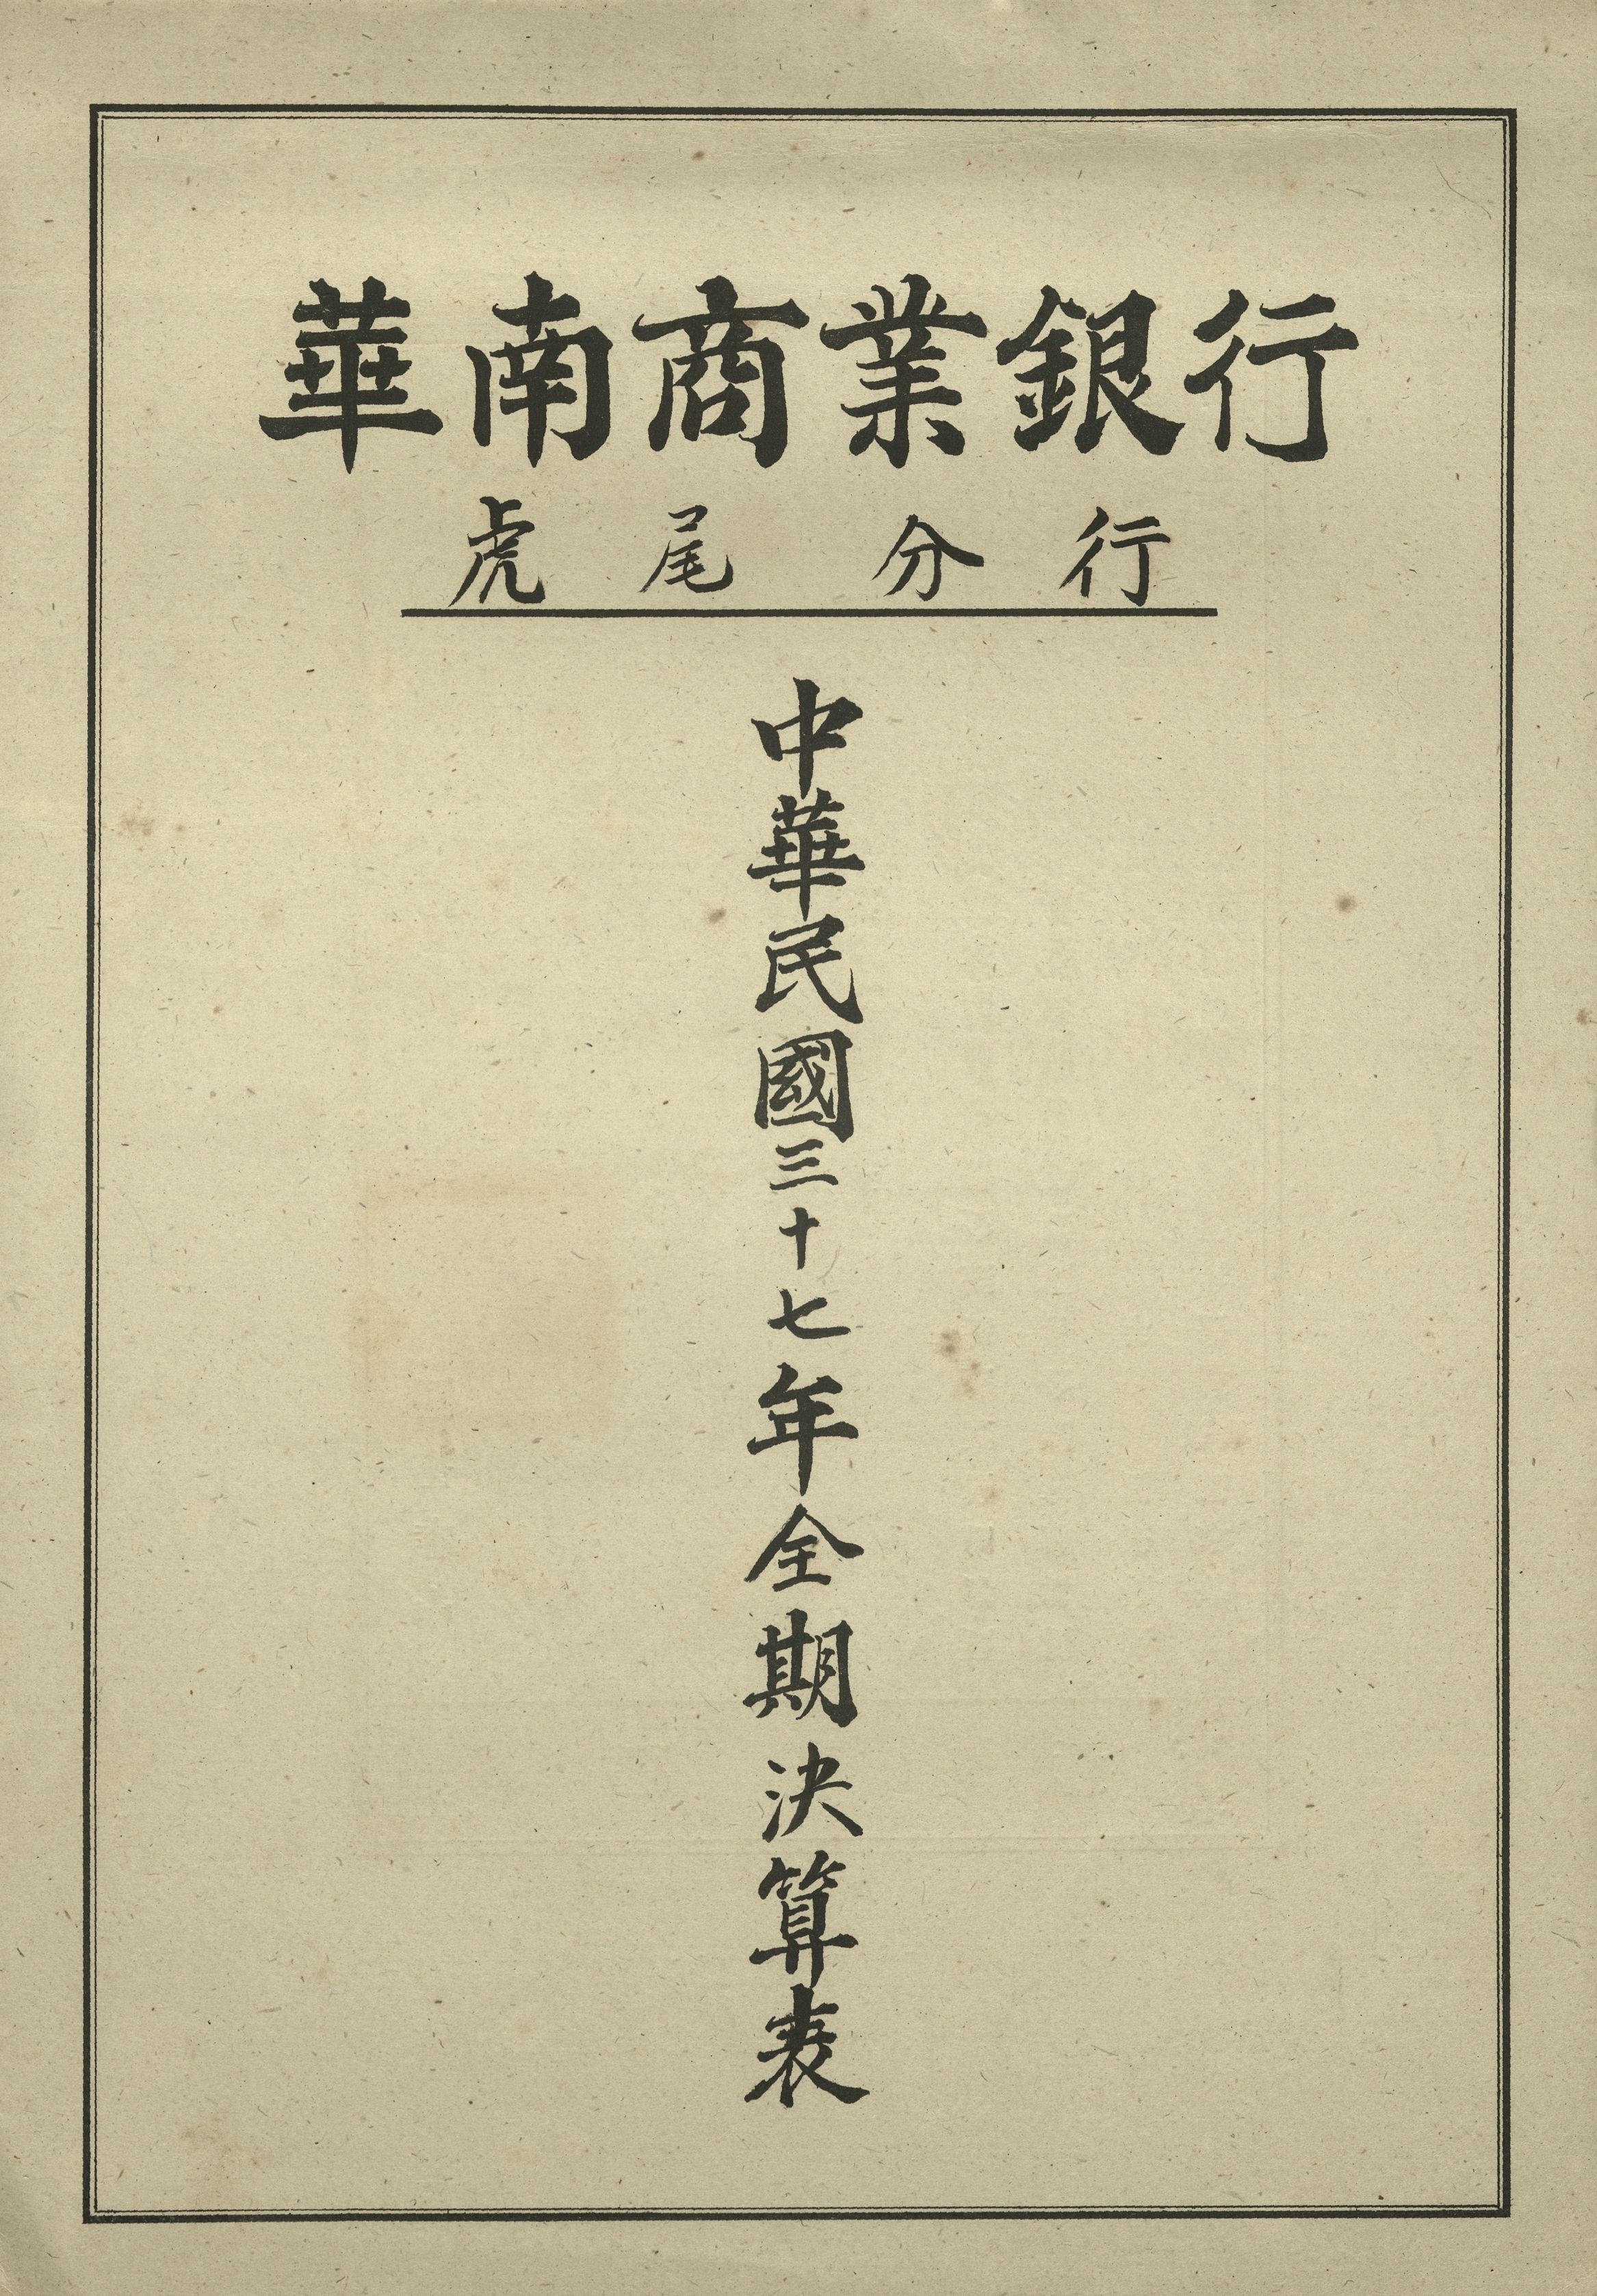 華南商業銀行
虎尾分行
中華民國三十七年全期決算表